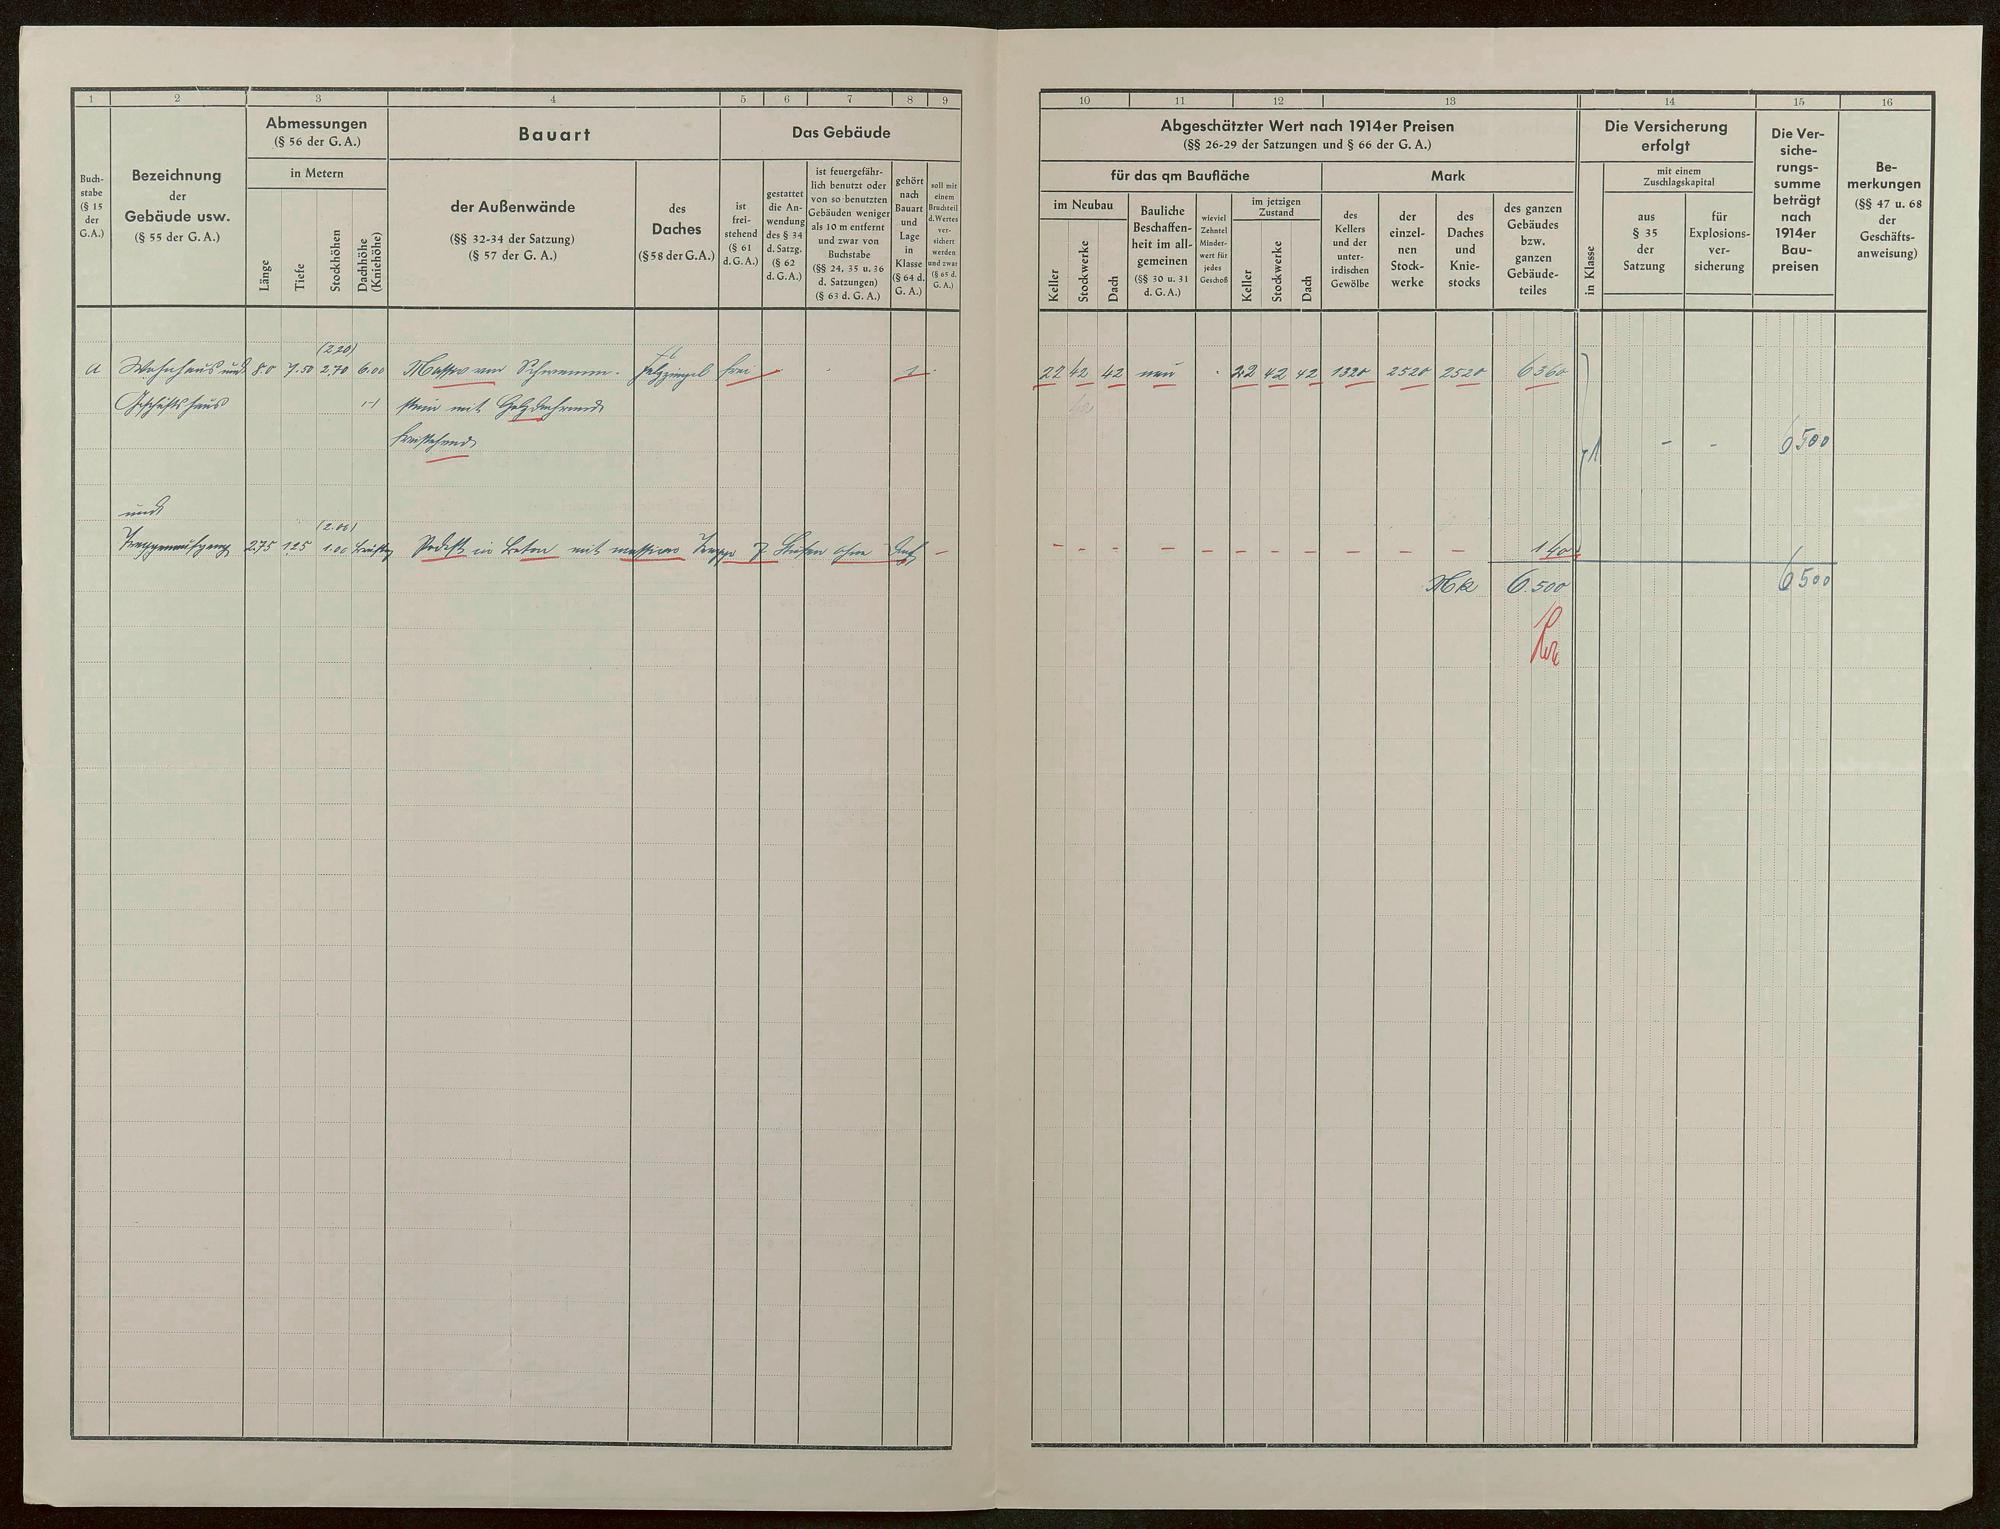 1 2 3 4 5 6 7 8 9
Buch-
stabe
(§ 15
der
G.A.)
Bezeichnung
der
Gebäude usw.
(§ 55 der G. A.)
Abmessungen
(§ 56 der G. A.)
in Metern
Länge
Tiefe
Stockhöhen
Dachhöhe
(Kniehöhe)
Bauart
der Außenwände
(§§ 32-34 der Satzung)
(§ 57 der G. A.)
des
Daches
(§ 58 der G. A.)
Das Gebäude
ist
frei-
stehend
(§ 61
d. G. A.)
gestattet
die An-
wendung
des § 34
d. Satzg.
(§ 62
d. G. A.)
ist feuergefähr-
lich benutzt oder
von so benutzten
Gebäuden weniger
als 10 m entfernt
und zwar von
Buchstabe
(§§ 24, 35 u. 36
d. Satzungen)
(§ 63 d. G. A.)
gehört
nach
Bauart
und
Lage
in
Klasse
(§ 64 d.
G. A.)
soll mit
einem
Bruchteil
d. Wertes
ver-
sichert
werden
und zwar
(§ 65 d.
G. A.)
(2.20)
a Wohnhaus und 8.0 7.50 2.70 6.00 Massiv von Schwemm- Falzziegel frei 1
Geschäftshaus stein mit Holzdachrand
freistehend
und
(2.00)
Treppenaufgang 2.75 1.25 1.00 Podest in Beton mit massiver Treppe 7 Stufen ohne Dach -
10 11 12 13 14 15 16
Abgeschätzter Wert nach 1914er Preisen
(§§ 26-29 der Satzungen und § 66 der G. A.)
für das qm Baufläche
im Neubau
Keller
Stockwerke
Dach
Bauliche
Beschaffen-
heit im all-
gemeinen
(§§ 30 u. 31
d. G. A.)
wieviel
Zehntel
Minder-
wert für
jedes
Geschoß
im jetzigen
Zustand
Keller
Stockwerke
Dach
Mark
des
Kellers
und der
unter-
irdischen
Gewölbe
der
einzel-
nen
Stock-
werke
des
Daches
und
Knie-
stocks
des ganzen
Gebäudes
bzw.
ganzen
Gebäude-
teiles
Die Versicherung
erfolgt
in Klasse
mit einem
Zuschlagskapital
aus
§ 35
der
Satzung
für
Explosions-
ver-
sicherung
Die Ver-
siche-
rungs-
summe
beträgt
nach
1914er
Bau-
preisen
Be-
merkungen
(§§ 47 u. 68
der
Geschäfts-
anweisung)
22 42 42 neu · 22 42 42 1320 2520 2520 6360
1 - - 6500
- - - - - - - - - - - 140
Mk 6.500 6500